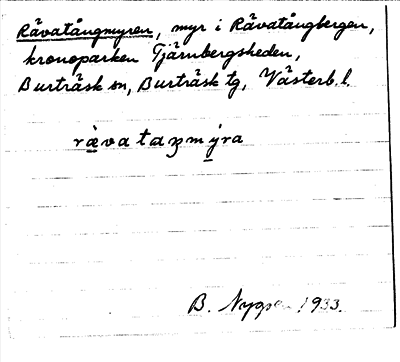 Rävatångmyren, myr i Rävatångbergen,
kronoparken Tjärnbergsheden,
Burträsk sn, Burträsk tg, Västerb. l.
rä̀vataŋmýra
B. Nygren 1933.